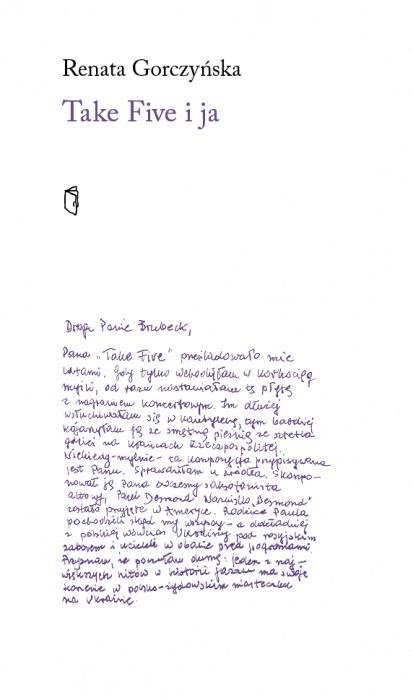 Renata Gorczyńska
Take Five i ja
Drogi Panie Brubeck,
Pana „Take Five" prześladowało mnie
latami. Gdy tylko wchodziłam w
myśli, od razu nastawiałam tę płytę
z nagraniem koncertowym. Im dłużej
wsłuchiwałam się w kantylenę, tym bardziej
kojarzyłam ją ze smętną pieśnią ze sztetla
gdzieś na krańcach Rzeczpospolitej.
Niekiedy - mylnie - ta kompozycja przypisywana
jest Panu. Sprawdziłam u źródła. Skompo-
nował ją Pana ówczesny saksofonista
altowy, Paul Desmond. Nazwisko „Desmond"
zostało przyjęte w Ameryce. Rodzice Paula
pochodzili skąd my wszyscy - a dokładniej
z polskiej wówczas Ukrainy pod rosyjskim
zaborem i uciekli w obawie przed pogromami.
Przyznam, że poczułam dumę: jeden z naj-
większych hitów w historii jazzu ma swoje
korzenie w polsko-żydowskim miasteczku
na Ukrainie.